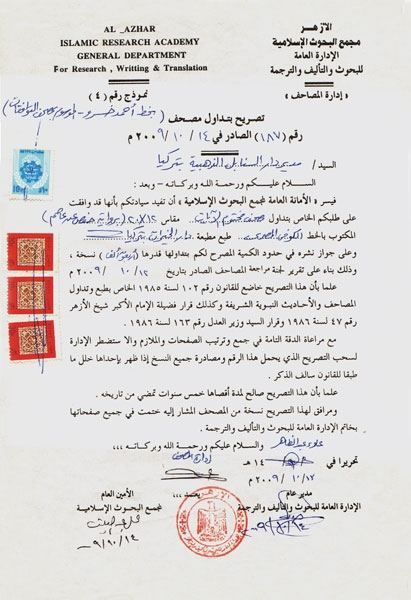 AL _AZHAR
ISLAMIC RESEARCH ACADEMY
GENERAL DEPARTMENT
For Research , Writting & Translation
الأزهر
مجمع البحوث الإسلامية
الإدارة العامة
للبحوث والتأليف والترجمة
« إدارة المصاحف »
نموذج رقم ( ٤ )
تصريح بتداول مصحف
رقم ( ١٨٧ ) الصادر في ١٤ / ١٠ / ٢٠٠٩ م
السيد / مدير دار السنابل الذهبية بتركيا
السلام عليكم ورحمة الله وبركاته - وبعد :
فيسر « الأمانة العامة لمجمع البحوث الإسلامية » أن تفيد سيادتكم بأنها قد وافقت
على طلبكم الخاص بتداول مصحف مقاس ٢٠X١٤
المكتوب بالخط طبع مطبعة
وعلى جواز نشره في حدود الكمية المصرح لكم بتداولها قدرها نسخة ،
وذلك بناء على تقرير لجنة مراجعة المصاحف الصادر بتاريخ ١٢ / ١٠ / ٢٠٠٩ م
علما بأن هذا التصريح خاضع للقانون رقم ١٠٢ لسنة ١٩٨٥ الخاص بطبع وتداول
المصاحف والأحاديث النبوية الشريفة وكذلك قرار فضيلة الإمام الأكبر شيخ الأزهر
رقم ٤٧ لسنة ١٩٨٦ وقرار السيد وزير العدل رقم ١٦٣ لسنة ١٩٨٦ .
مع مراعاة الدقة التامة في جمع وترتيب الصفحات والملازم وإلا ستضطر الإدارة
لسحب التصريح الذي يحمل هذا الرقم ومصادرة جميع النسخ إذا ظهر بإحداها خلل ما
طبقا للقانون سالف الذكر .
علما بأن هذا التصريح صالح لمدة أقصاها خمس سنوات تمضي من تاريخه .
ومرافق لهذا التصريح نسخة من المصحف المشار إليه ختمت في جميع صفحاتها
بخاتم الإدارة العامة للبحوث والتأليف والترجمة .
والسلام عليكم ورحمة الله وبركاته ،،،
تحريرا في / / ١٤ هـ
إدارة المصاحف
١٢ / ١٠ / ٢٠٠٩ م
مدير عام
الإدارة العامة للبحوث والتأليف والترجمة
يعتمد ،،،
الأمين العام
لمجمع البحوث الإسلامية